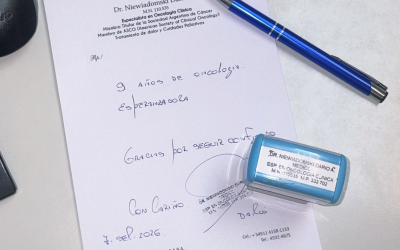 Dr. Niewiadomski Da
M.N. 110.535
Especialista en Oncología Clínica
Miembro Titular de la Sociedad Argentina de Cáncer
Miembro de ASCO (American Society of Clinical Oncology)
Tratamiento de dolor y Cuidados Paliativos
Rp/
9 AÑOS DE ONCOLOGIA
ESPERANZADORA
GRACIAS POR SEGUIR CONFIANDO
DR. NIEWIADOMSKI DARIO R
MEDICO
ESP. EN ONCOLOGIA CLINICA
CON CARIÑO
DARIO
7. SEP. 2025.